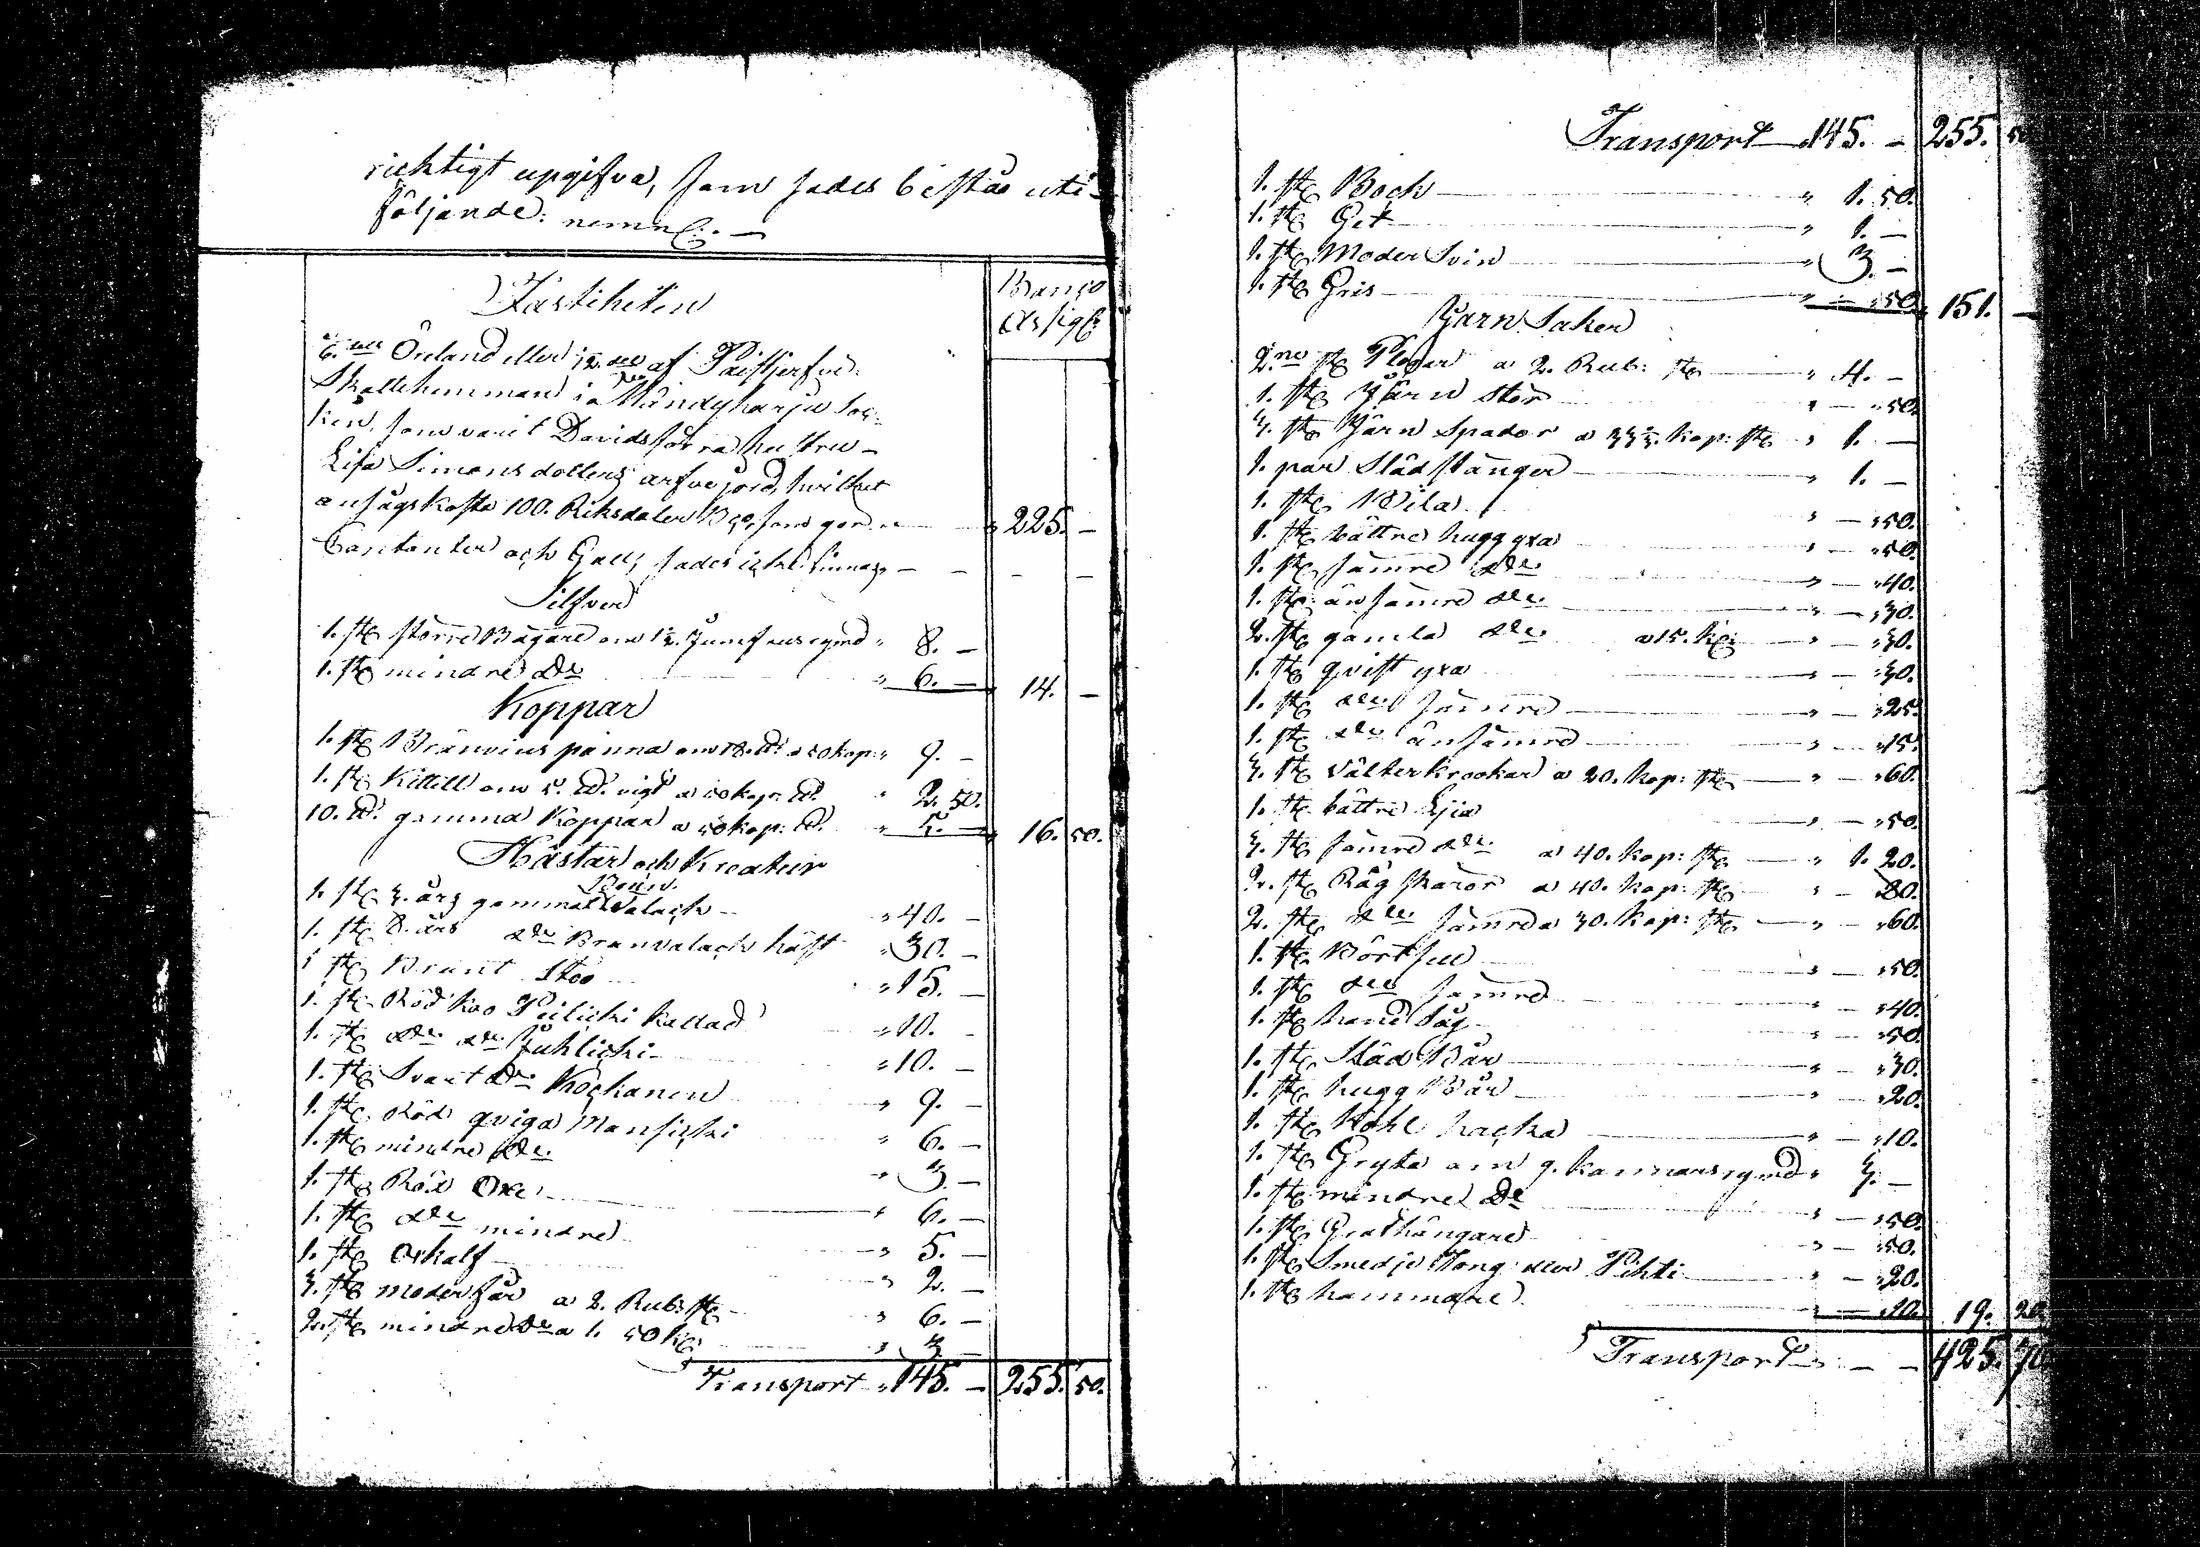 richtigt upgifva, som sades bestå uti
följande: nemnl:. —
Fastiheten
Banco
Assig:
6. Öreland eller 1/2 af
Skattehemman i Mändyharju Soc-
ken, som varit Davids förra hustru
Lisa Simonsdotters arfvejord, hvilket
ansågs kosta 100. Riksdaler Bco, som gör " 225. —
Contanter och Gull, sades icke finnas — — — —
Silfver
1. st: större Bägare om 1 1/2. Jumfrus rymd " 8. —
1. st: mindre do " 6. — 14. —
Koppar
1. st: Bränvins panna om 18. ℔ a 50 kop: " 9. —
1. st: Kittell om 5. ℔. vigt a 50 kop: ℔. " 2. 50.
10. ℔ gammal Koppar a 50 kop: ℔. " 5. — 16. 50.
Hästar och Kreatur
Brun
1. st: 3. års gammal Valack " 40. —
1. st: 8. års do Brun valack häst " 30. —
1 st: Brunt Stoo " 15. —
1. st: Röd Koo kallad " 10. —
1. st: do do Juhlicki " 10. —
1. st: Svart do Kockanen " 9. —
1. st: Röd qviga Mansicki " 6. —
1. st: mindre do " 3. —
1. st: Röd Oxe " 6. —
1. st: do mindre " 5. —
1. st: Oxkalf " 2. —
3. st: moder får a 2. Rub: st: " 6. —
2. st: mindre do a 1. 50 k: " 3. —
Transport " 145. — 255. 50.
Transport " 145. — 255. 50
1. st: Bock " 1. 50.
1. st: Get " 1. —
1. st: Moder Svin " 3. —
1. st: Gris " — " 50. 151. —
Jern Saker
2.ne st: Plogar a 2. Rub: st: " 4. —
1. st: Järn stör " — " 50.
3. st: Järn Spador a 33 1/3. kop: st: " 1. —
1. par Slädstänger " 1. —
1. st: Bila " — " 50.
1. st: bättre hugg yxa " — " 50.
1. st: sämre do " — " 40.
1. st: än sämre do " — " 30.
2. st: gamla do a 15. k: " — " 30.
1. st: qvist yxa " — " 30.
1. st: do sämre " — " 25.
1. st: do än sämre " — " 15.
3. st: välter krookar a 20. kop: st: " — " 60.
1. st: bättre Ljia " — " 50.
3. st: sämre do a 40. kop: st: " 1. 20.
2. st: Råg skäror a 40. kop: st: " — 80.
2. st: do sämre a 30. kop: st: " — " 60.
1. st: " — " 50.
1. st: do sämre " — " 40.
1. st: hand Såg " — " 50.
1. st: Släd Bår " — " 30.
1. st: hugg Bår " — " 20.
1. st: Kohl hacka " — " 10.
1. st: Gryta om 9. kannars rymd " 3. —
1. st: mindre do " — " 50.
1. st: Grathängare " — " 50.
1. st: Smedje Tong eller Pihti " — " 20.
1. st: hammare " — " 20. 19. 20
Transport " — — 425. 70